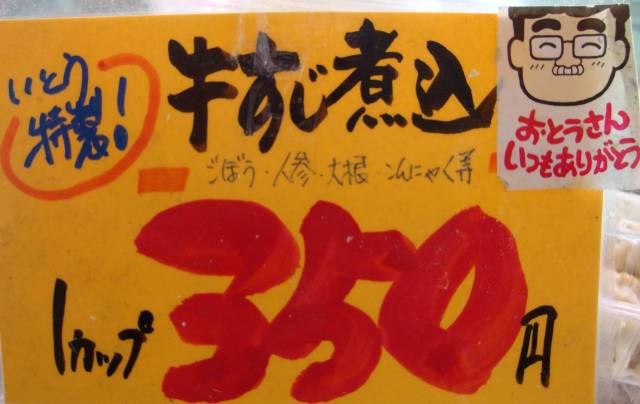 いとう
特製!
牛すじ煮込
ごぼう・人参・大根・こんにゃく等
1カップ
350円
おとうさん
いつもありがとう